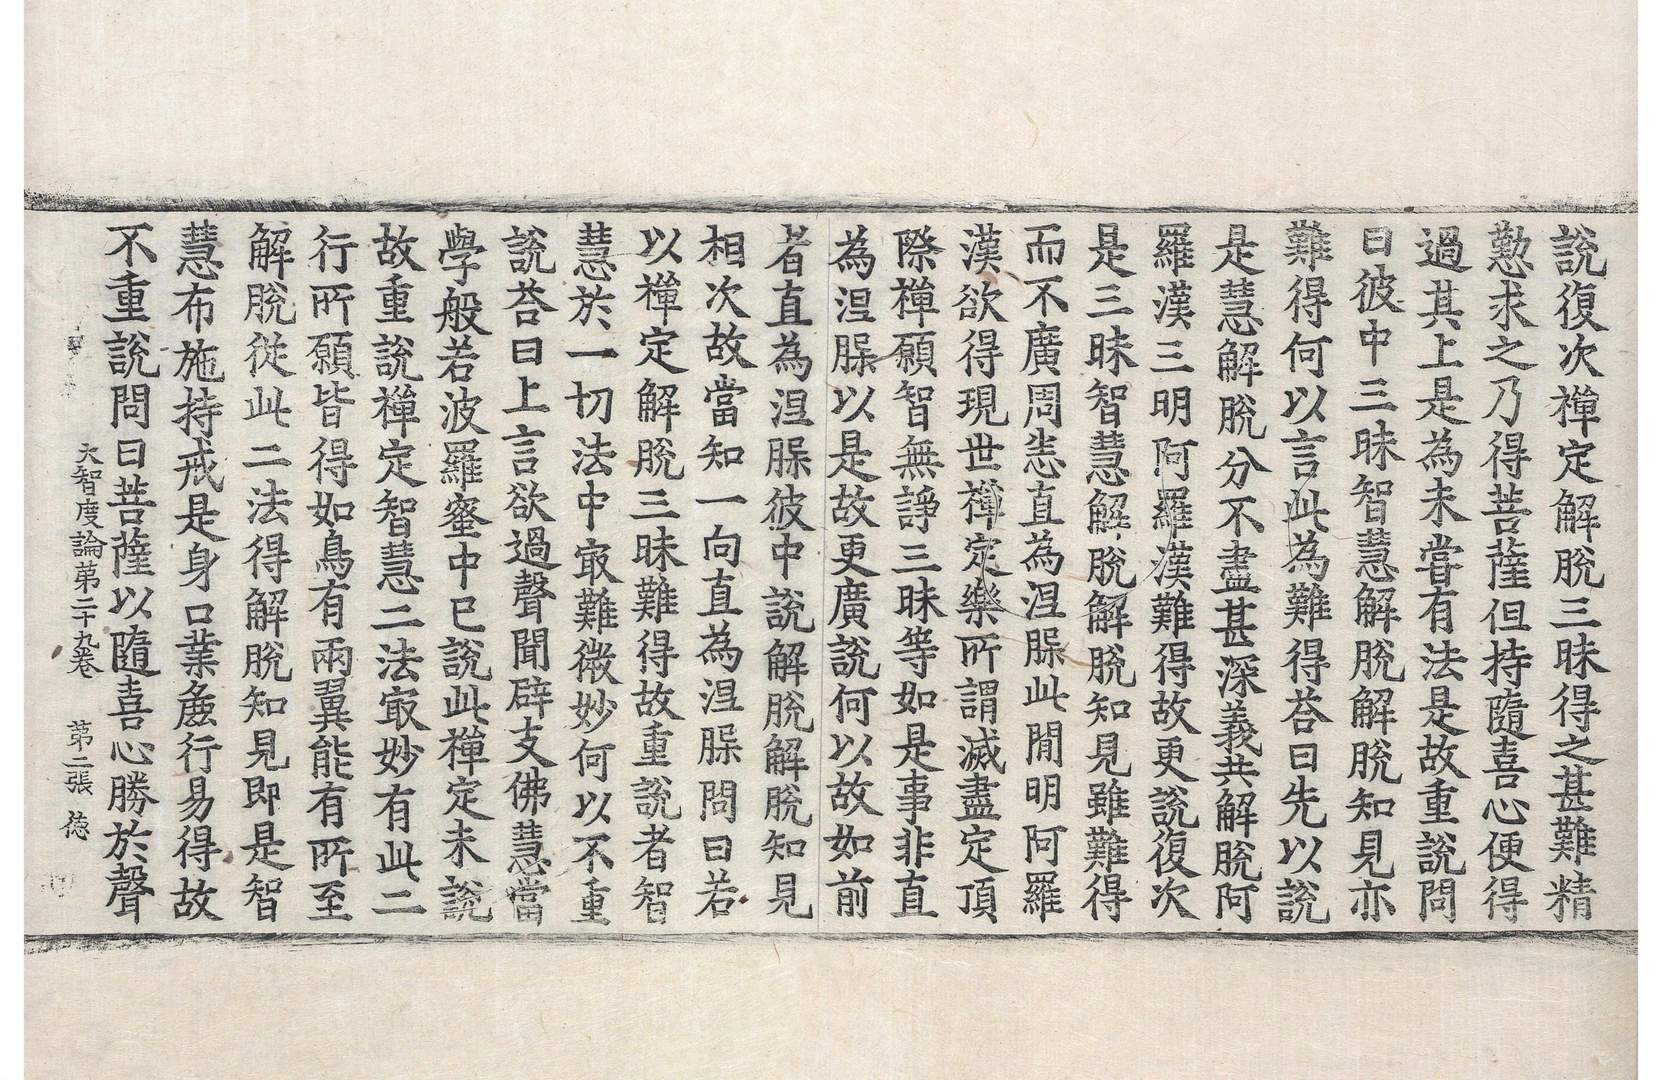 說復次禪定解脫三昧得之甚難精
懃求之乃得菩薩但持隨喜心便得
過其上是為未嘗有法是故重說問
曰彼中三昧智慧解脫解脫知見亦
難得何以言此為難得荅曰先以說
是慧解脫分不盡甚深義共解脫阿
羅漢三明阿羅漢難得故更說復次
是三昧智慧解脫解脫知見雖難得
而不廣周悉直為涅槃此閒明阿羅
漢欲得現世禪定樂所謂滅盡定頂
際禪願智無諍三昧等如是事非直
為涅槃以是故更廣說何以故如前
者直為涅槃彼中說解脫解脫知見
相次故當知一向直為涅槃問曰若
以禪定解脫三昧難得故重說者智
慧於一切法中㝡難微妙何以不重
說荅曰上言欲過聲聞辟支佛慧當
學般若波羅蜜中已說此禪定未說
故重說禪定智慧二法㝡妙有此二
行所願皆得如鳥有兩翼能有所至
解脫從此二法得解脫知見即是智
慧布施持戒是身口業麁行易得故
不重說問曰菩薩以隨喜心勝於聲
大智度論第二十九卷 第二張 德